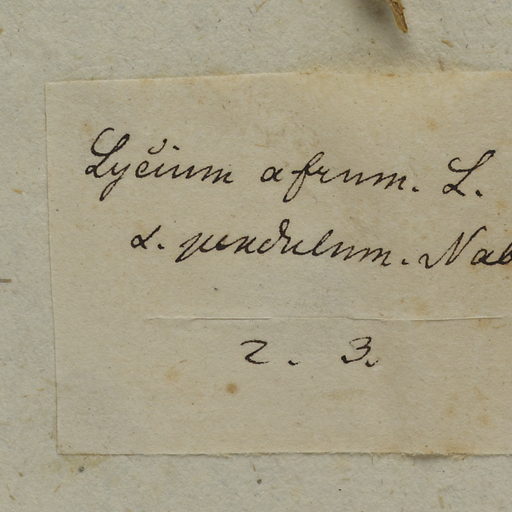 Lycium afrum. L.
α. pendulum. Nab
2. 3.